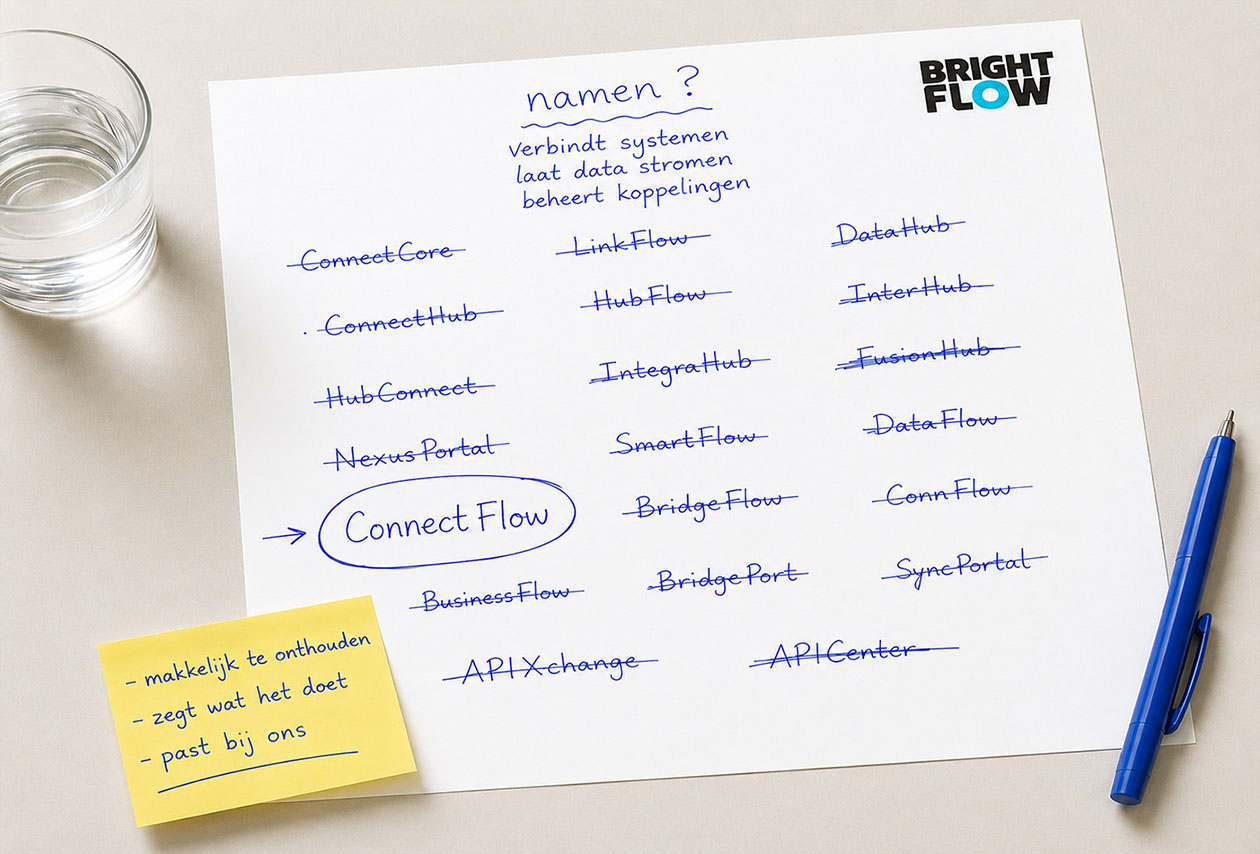 BRIGHT
FLOW
namen ?
verbindt systemen
laat data stromen
beheert koppelingen
ConnectCore
LinkFlow
DataHub
ConnectHub
HubFlow
InterHub
HubConnect
IntegraHub
FusionHub
NexusPortal
SmartFlow
DataFlow
→ Connect Flow
BridgeFlow
ConnFlow
BusinessFlow
BridgePort
SyncPortal
APIXchange
APICenter
- makkelijk te onthouden
- zegt wat het doet
- past bij ons